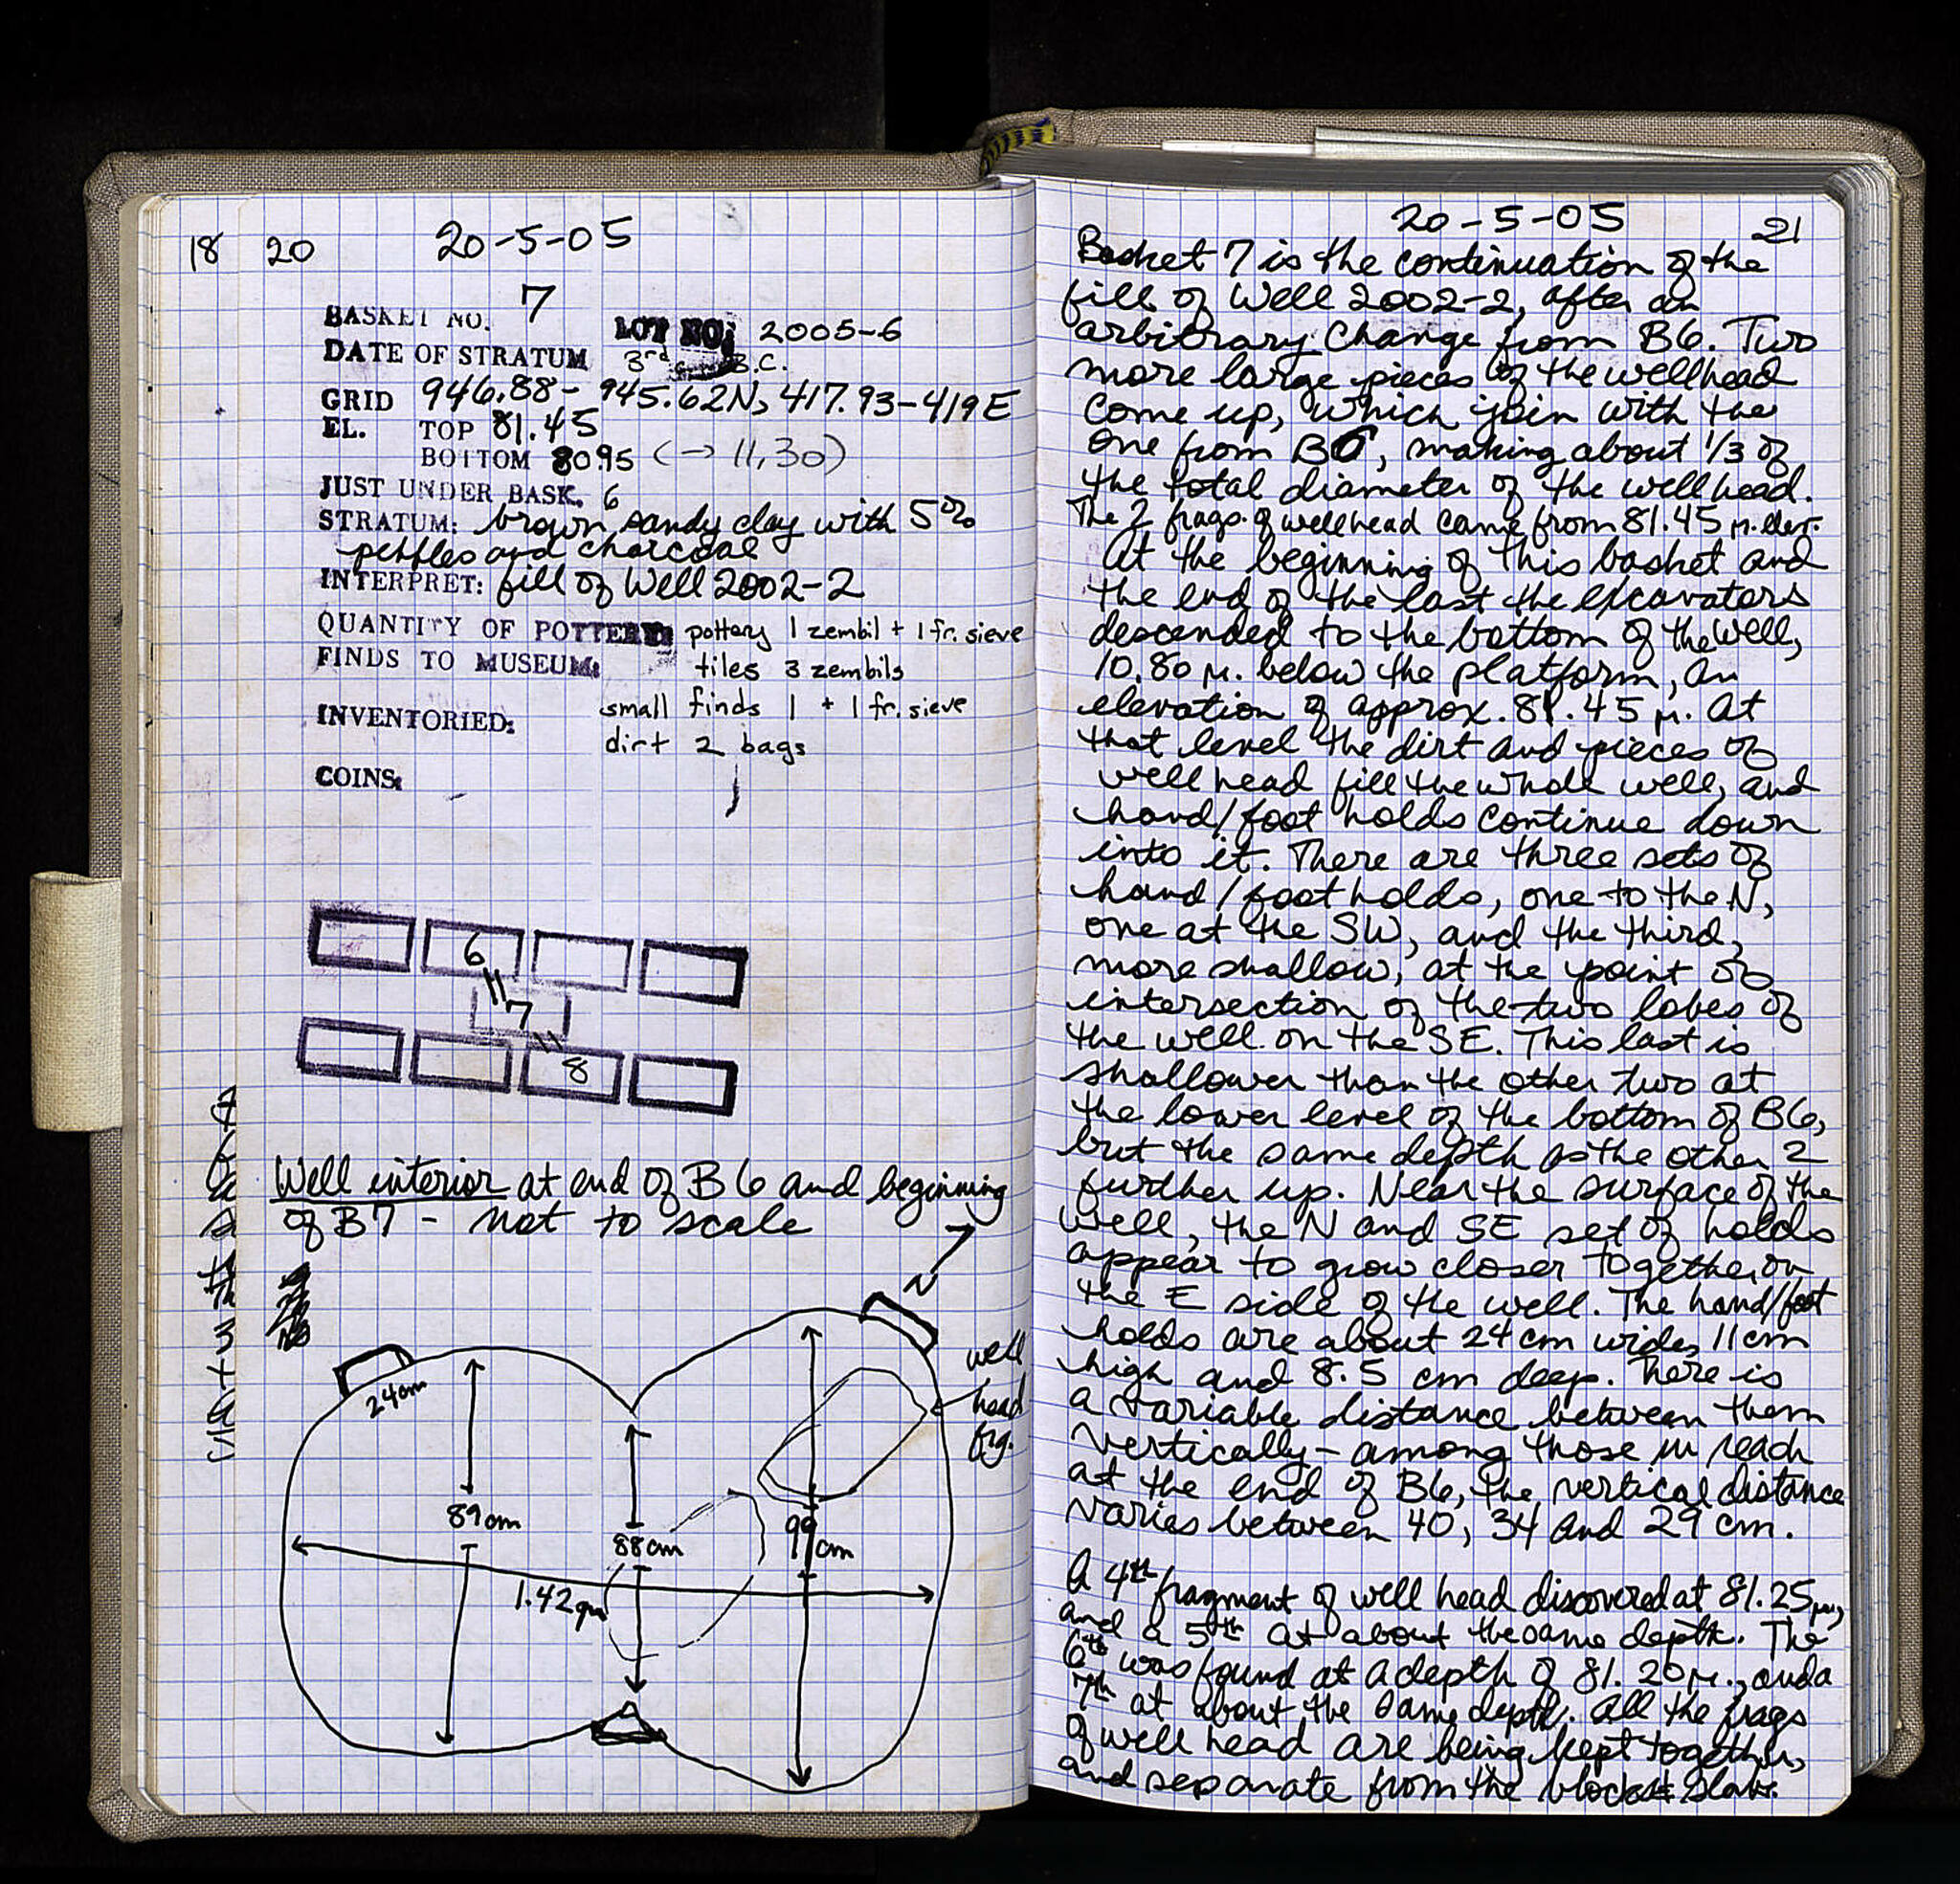 18 20 20-5-05
BASKET NO. 7
LOT NO: 2005-6
DATE OF STRATUM 3rd c. B.C.
GRID 946.88- 945.62N, 417.93-419E
EL. TOP 81.45
BOTTOM 80.95 (→ 11,30)
JUST UNDER BASK. 6
STRATUM: brown sandy clay with 5%
pebbles and charcoal
INTERPRET: fill of Well 2002-2
QUANTITY OF POTTERY: pottery 1 zembil + 1 fr. sieve
FINDS TO MUSEUM: tiles 3 zembils
small finds 1 + 1 fr. sieve
INVENTORIED:
dirt 2 bags
COINS:
6
7
8
Well interior at end of B6 and beginning
of B7 - not to scale
N
well
head
frg.
24cm
89cm
88cm
99cm
1.42m
20-5-05 21
Basket 7 is the continuation of the
fill of Well 2002-2, after an
arbitrary change from B6. Two
more large pieces of the wellhead
come up, which join with the
one from B6, making about 1/3 of
the total diameter of the wellhead.
The 2 frags. of wellhead came from 81.45 m. elev.
At the beginning of this basket and
the end of the last the excavators
descended to the bottom of the well,
10.80 m. below the platform, an
elevation of approx. 81.45 m. At
that level the dirt and pieces of
well head fill the whole well, and
hand/foot holds continue down
into it. There are three sets of
hand/foot holds, one to the N,
one at the SW, and the third,
more shallow, at the point of
intersection of the two lobes of
the well on the SE. This last is
shallower than the other two at
the lower level of the bottom of B6,
but the same depth as the other 2
further up. Near the surface of the
well, the N and SE set of holds
appear to grow closer together on
the E side of the well. The hand/foot
holds are about 24 cm wide, 11 cm
high and 8.5 cm deep. There is
a variable distance between them
vertically - among those in reach
at the end of B6, the vertical distance
varies between 40, 34 and 29 cm.
A 4th fragment of well head discovered at 81.25 m,
and a 5th at about the same depth. The
6th was found at a depth of 81.20 m., and a
7th at about the same depth. All the frags
of well head are being kept together,
and separate from the blocks + slabs.